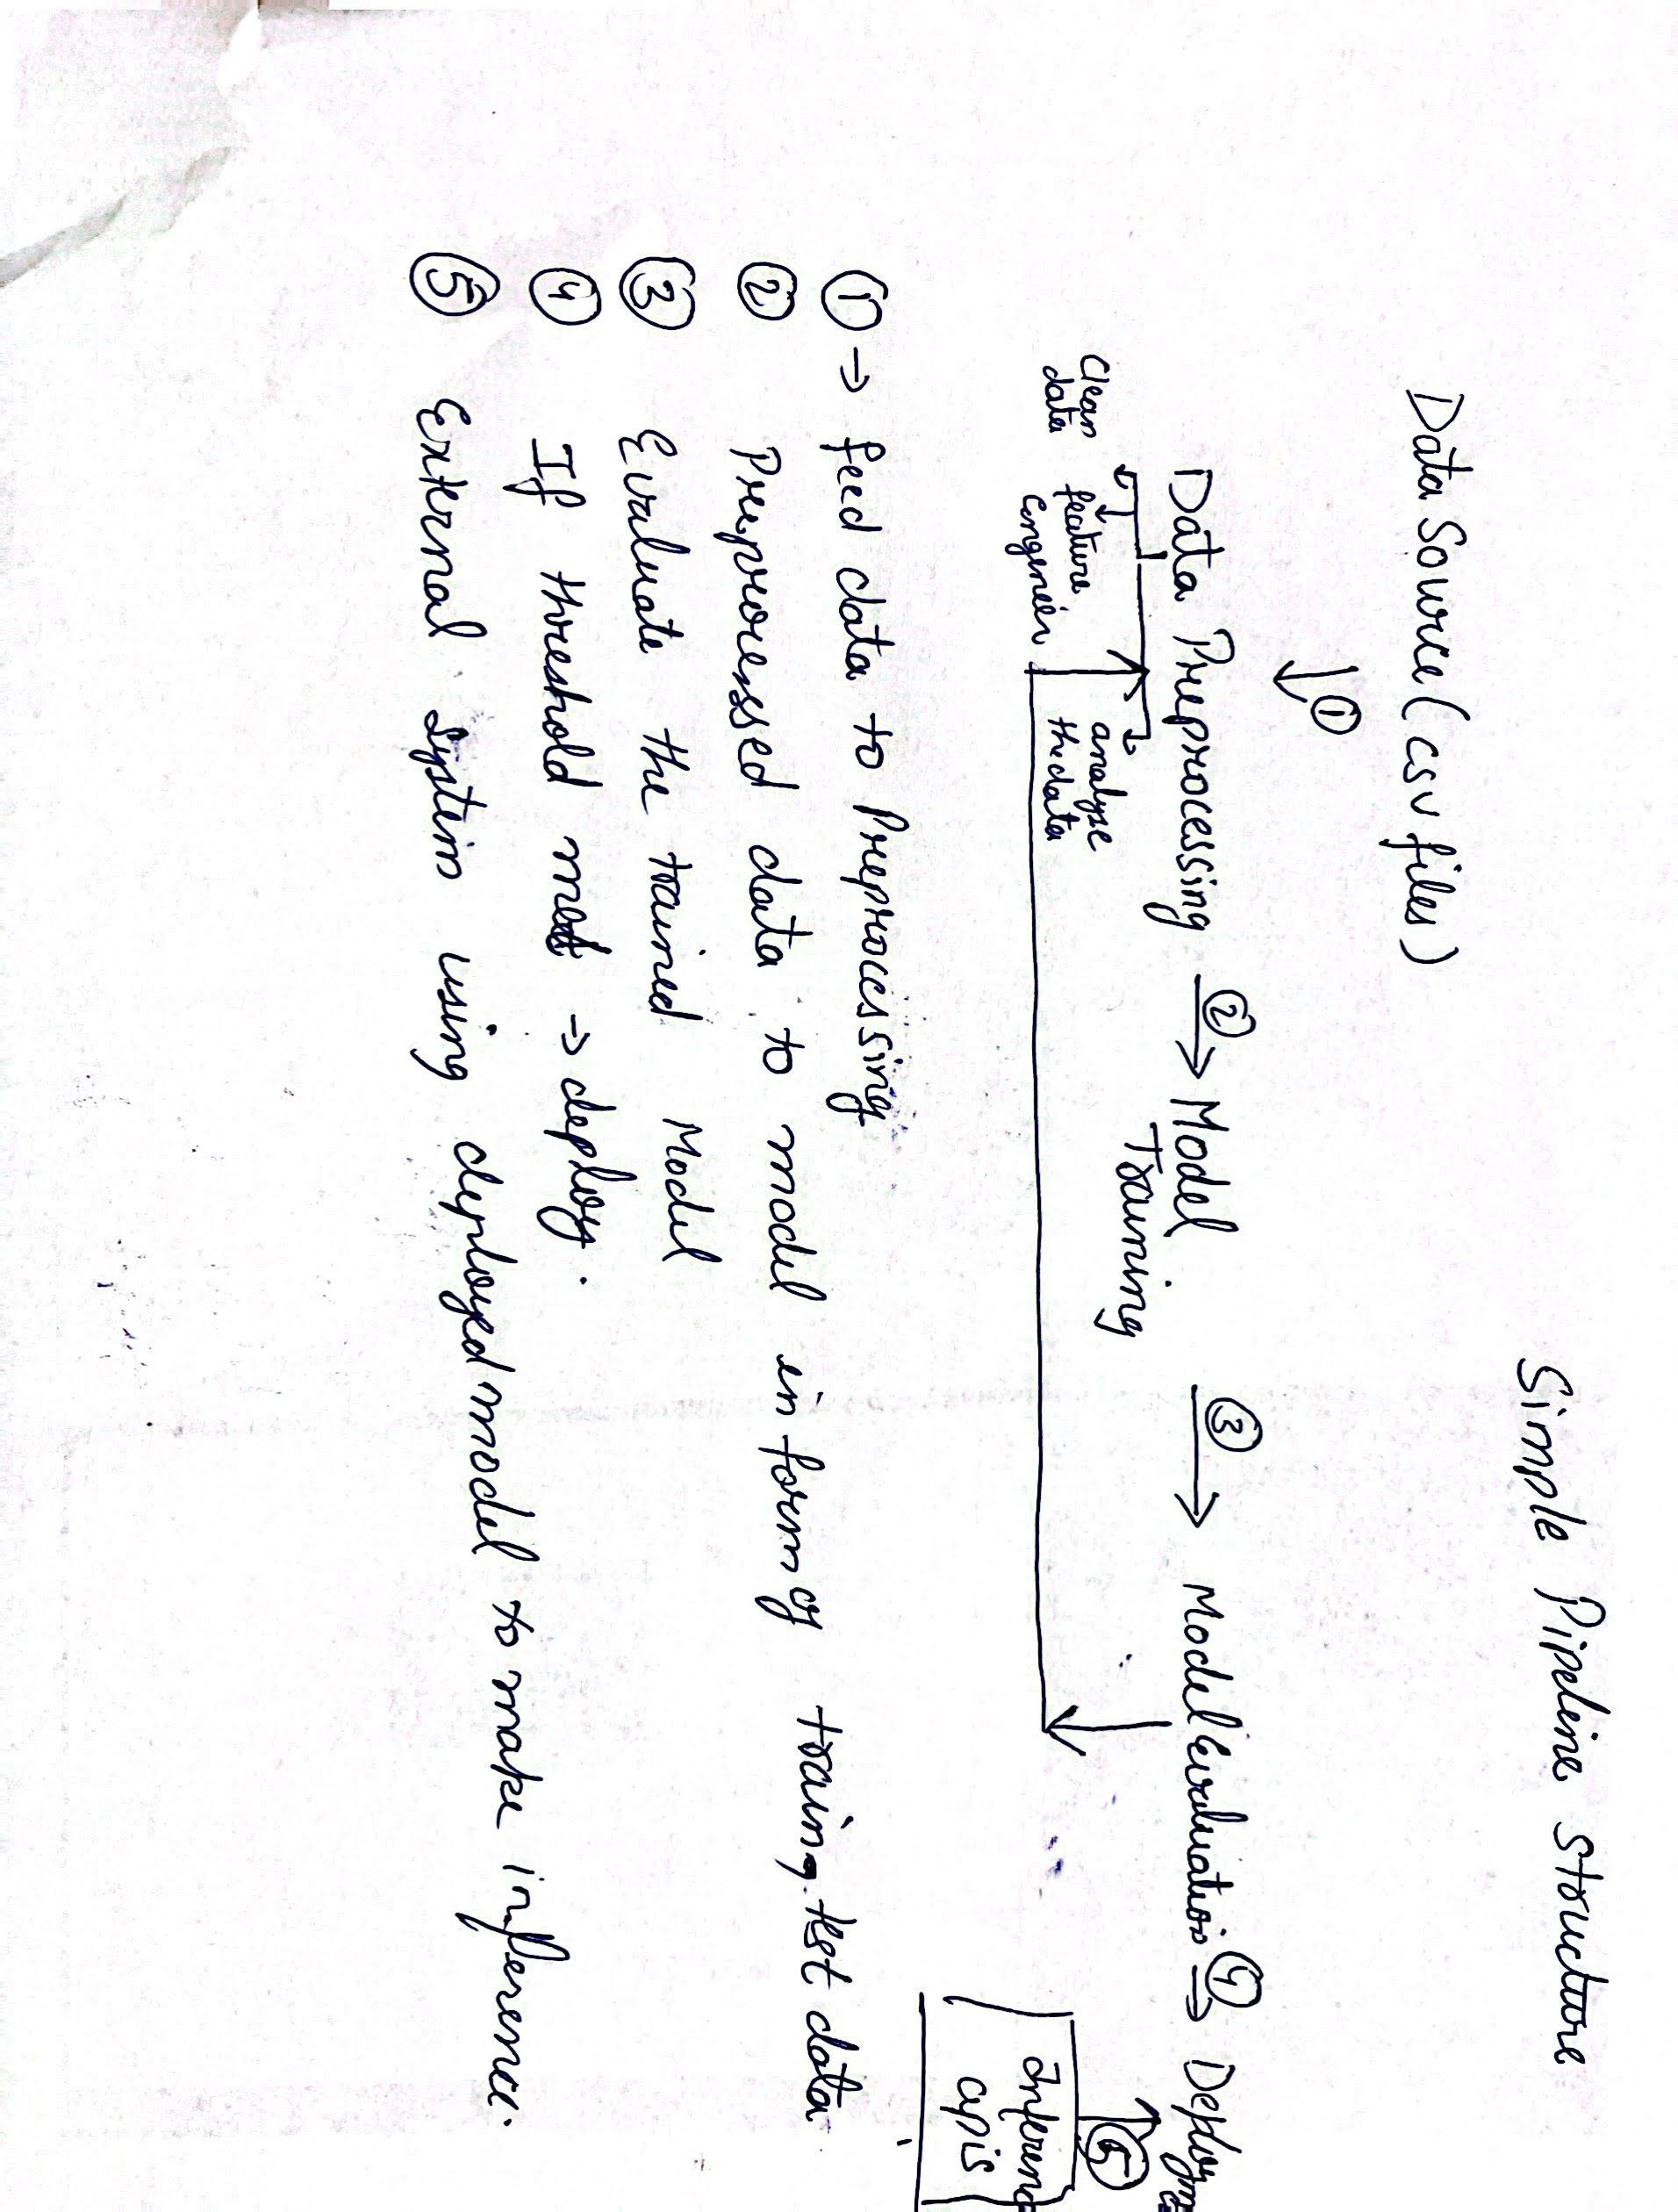 Simple Pipeline Structure
Data Source (csv files)
①
Data Preprocessing ② → Model Training ③ → Model Evaluation ④ → Deploy
Clean data
feature
analyse the data
⑤
Inferenc
apis
① → feed data to Preprocessing
② Preprocessed data to model in form of training, test data
③ Evaluate the trained Model
④ If threshold met → deploy.
⑤ External System using deployed model to make inference.